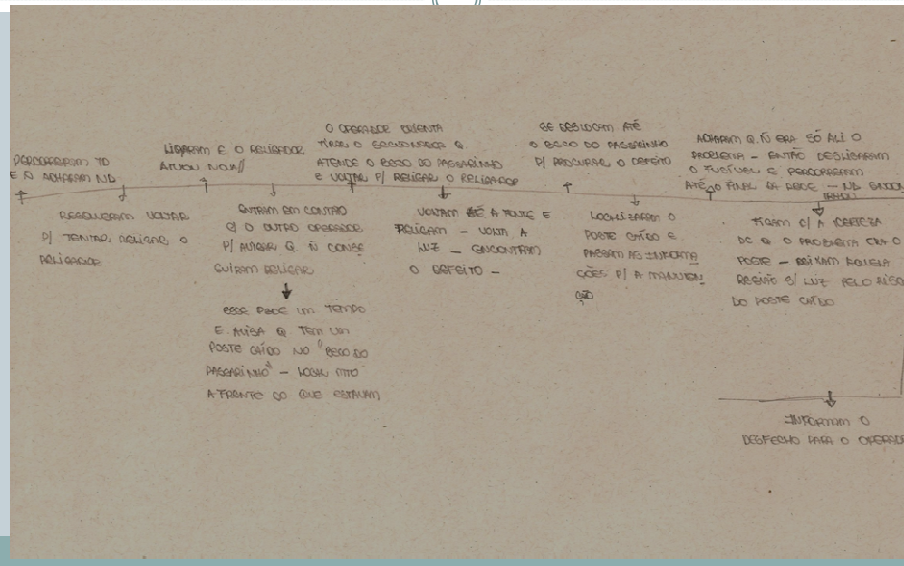 PERCORRERAM TO
E Ñ ACHARAM ND
RESOLVERAM VOLTAR
P/ TENTAR RELIGAR O
RELIGADOR
LIGARAM E O RELIGADOR
ATUOU NOVA//
ENTRAM EM CONTATO
C/ O OUTRO OPERADOR
P/ AVISAR Q Ñ CONSE
GUIRAM RELIGAR
ESSE PEDE UM TEMPO
E AVISA Q TEM UM
POSTE CAÍDO NO "BECO DO
PASSARINHO" - LOCAL MTO
A FRENTE DO QUE ESTAVAM
O OPERADOR ORIENTA
ATENDE O BECO DO PASSARINHO
E VOLTAR P/ RELIGAR O RELIGADOR
VOLTAM ATÉ A FONTE E
RELIGAM - VOLTA A
LUZ - ENCONTRAM
O DEFEITO -
SE DESLOCAM ATÉ
O BECO DO PASSARINHO
P/ PROCURAR O DEFEITO
LOCALIZARAM O
POSTE CAÍDO E
PASSAM AS INFORMA
ÇÕES P/ A MANUTEN
ÇÃO
ACHARAM Q Ñ ERA SÓ ALI O
PROBLEMA - ENTÃO DESLIGARAM
O FUSÍVEL E PERCORRERAM
ATÉ O FINAL DA REDE - ND
FICAM C/ A CERTEZA
DE Q O PROBLEMA ERA O
POSTE - DEIXAM AQUELA
REGIÃO S/ LUZ PELO RISCO
DO POSTE CAÍDO
INFORMAM O
DESFECHO PARA O OPERADO